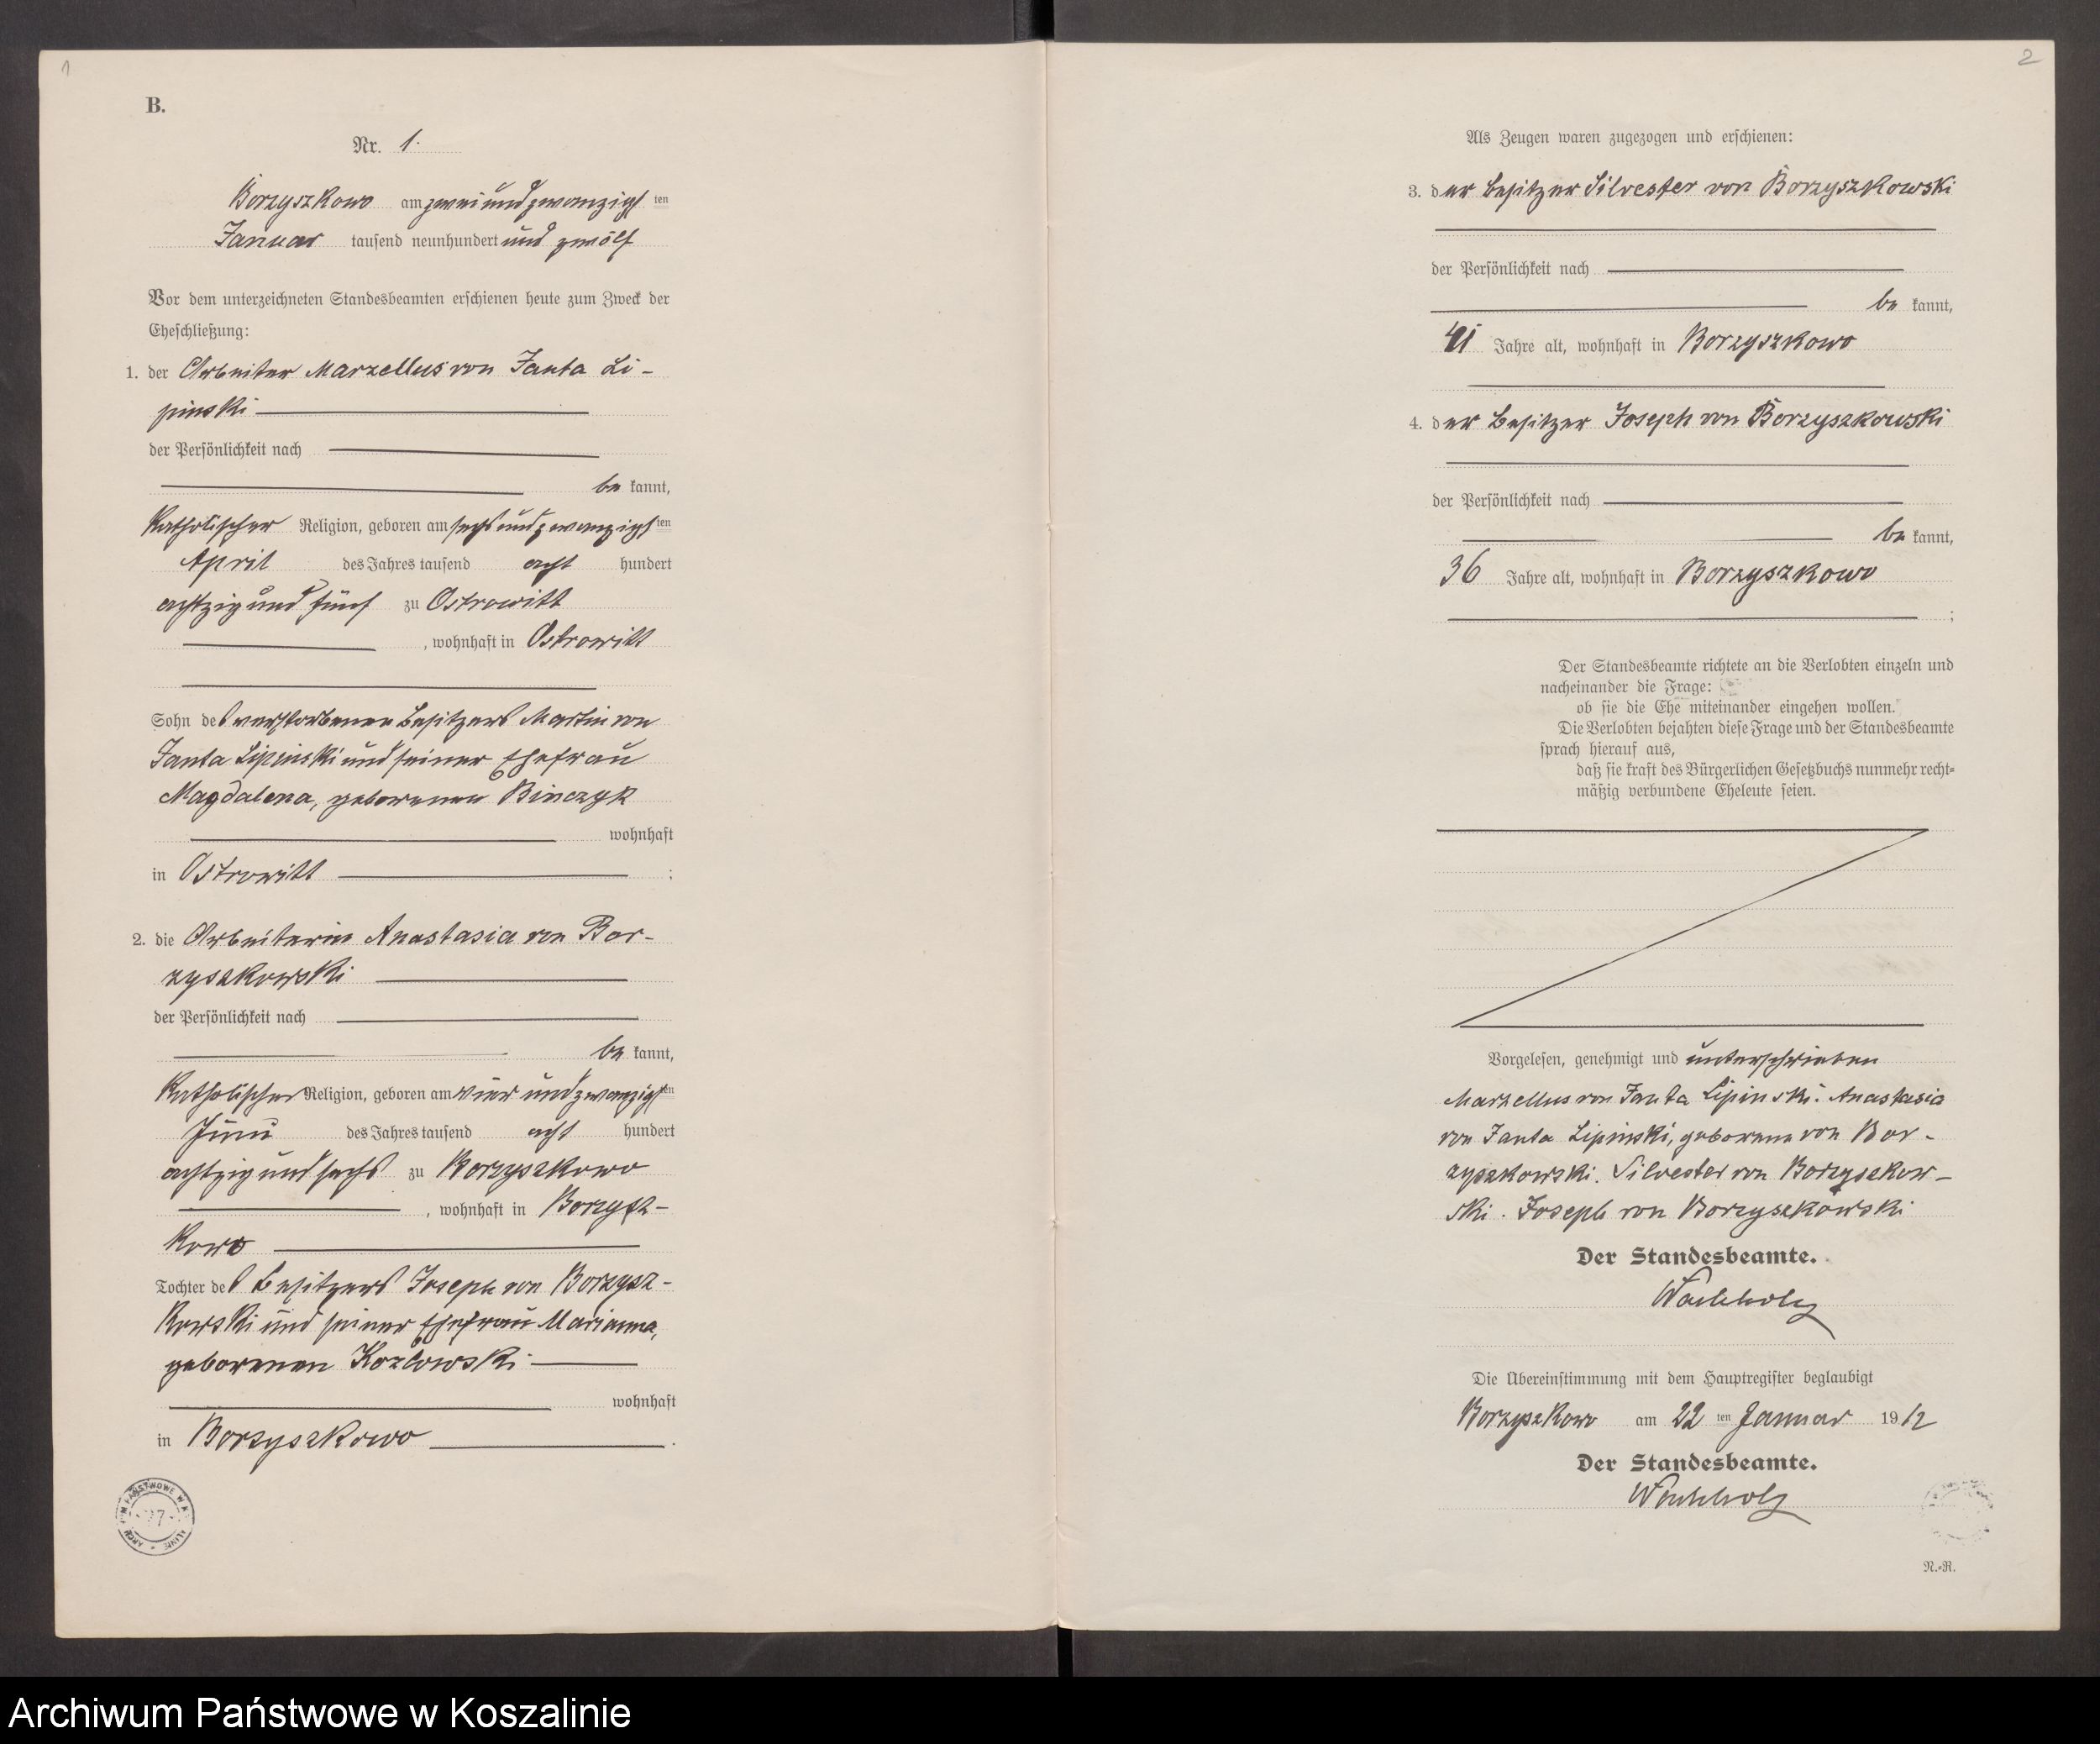 1
B.
Nr. 1.
Borzyszkowo am zwei und zwanzigsten
Januar tausend neunhundert und zwölf
Vor dem unterzeichneten Standesbeamten erschienen heute zum Zweck der
Eheschließung:
1. der Arbeiter Marzellus von Janta Li-
pinski
der Persönlichkeit nach
be kannt,
Katholischer Religion, geboren am sechs und zwanzigsten
April des Jahres tausend acht hundert
achtzig und fünf zu Ostrowitt
, wohnhaft in Ostrowitt
Sohn des verstorbenen Besitzers Martin von
Janta Lipinski und seiner Ehefrau
Magdalena, geborenen Binczyk
wohnhaft
in Ostrowitt ;
2. die Arbeiterin Anastasia von Bor-
zyszkowski
der Persönlichkeit nach
be kannt,
Katholischer Religion, geboren am vier und zwanzigsten
Juni des Jahres tausend acht hundert
achtzig und sechs zu Borzyszkowo
, wohnhaft in Borzysz-
kowo
Tochter des Besitzers Joseph von Borzysz-
kowski und seiner Ehefrau Marianna,
geborenen Kozlowski
wohnhaft
in Borzyszkowo .
2
Als Zeugen waren zugezogen und erschienen:
3. der Besitzer Silvester von Borzyszkowski
der Persönlichkeit nach
be kannt,
41 Jahre alt, wohnhaft in Borzyszkowo
4. der Besitzer Joseph von Borzyszkowski
der Persönlichkeit nach
be kannt,
36 Jahre alt, wohnhaft in Borzyszkowo
;
Der Standesbeamte richtete an die Verlobten einzeln und
nacheinander die Frage:
ob sie die Ehe miteinander eingehen wollen.
Die Verlobten bejahten diese Frage und der Standesbeamte
sprach hierauf aus,
daß sie kraft des Bürgerlichen Gesetzbuchs nunmehr recht-
mäßig verbundene Eheleute seien.
Vorgelesen, genehmigt und unterschrieben
Marzellus von Janta Lipinski. Anastasia
von Janta Lipinski, geborene von Bor-
zyszkowski. Silvester von Borzyszkow-
ski. Joseph von Borzyszkowski
Der Standesbeamte.
Wachholz
Die Übereinstimmung mit dem Hauptregister beglaubigt
Borzyszkowo am 22 ten Januar 1912
Der Standesbeamte.
Wachholz
N.-R.
Archiwum Państwowe w Koszalinie